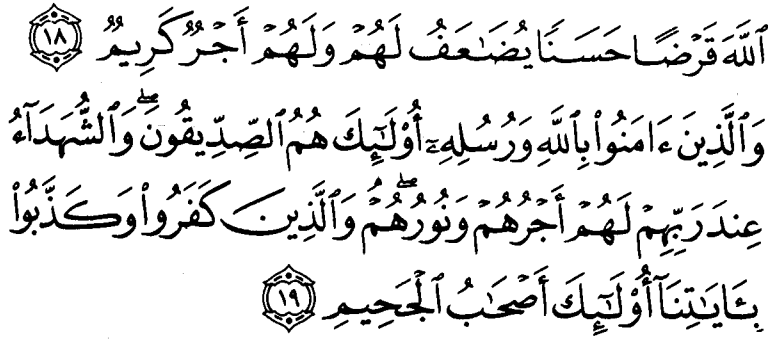 ٱللَّهَ قَرۡضًا حَسَنٗا يُضَٰعَفُ لَهُمۡ وَلَهُمۡ أَجۡرٞ كَرِيمٞ ١٨
وَٱلَّذِينَ ءَامَنُواْ بِٱللَّهِ وَرُسُلِهِۦٓ أُوْلَٰٓئِكَ هُمُ ٱلصِّدِّيقُونَۖ وَٱلشُّهَدَآءُ
عِندَ رَبِّهِمۡ لَهُمۡ أَجۡرُهُمۡ وَنُورُهُمۡۖ وَٱلَّذِينَ كَفَرُواْ وَكَذَّبُواْ
بِـَٔايَٰتِنَآ أُوْلَٰٓئِكَ أَصۡحَٰبُ ٱلۡجَحِيمِ ١٩